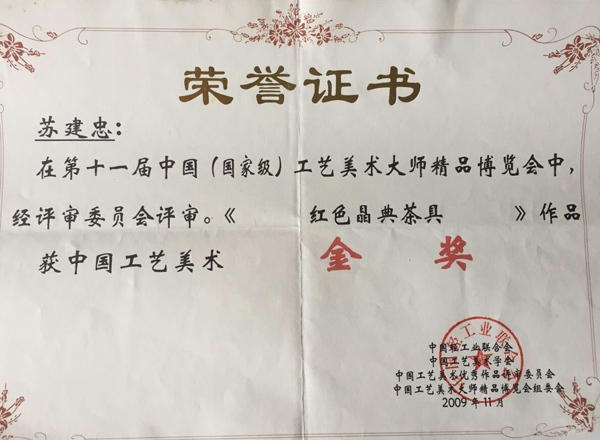 荣誉证书
苏建忠：
在第十一届中国（国家级）工艺美术大师精品博览会中，
经评审委员会评审。《 红色晶典茶具 》作品
获中国工艺美术 金奖
中国轻工业联合会
中国工艺美术学会
中国工艺美术优秀作品评审委员会
中国工艺美术大师精品博览会组委会
2009年11月